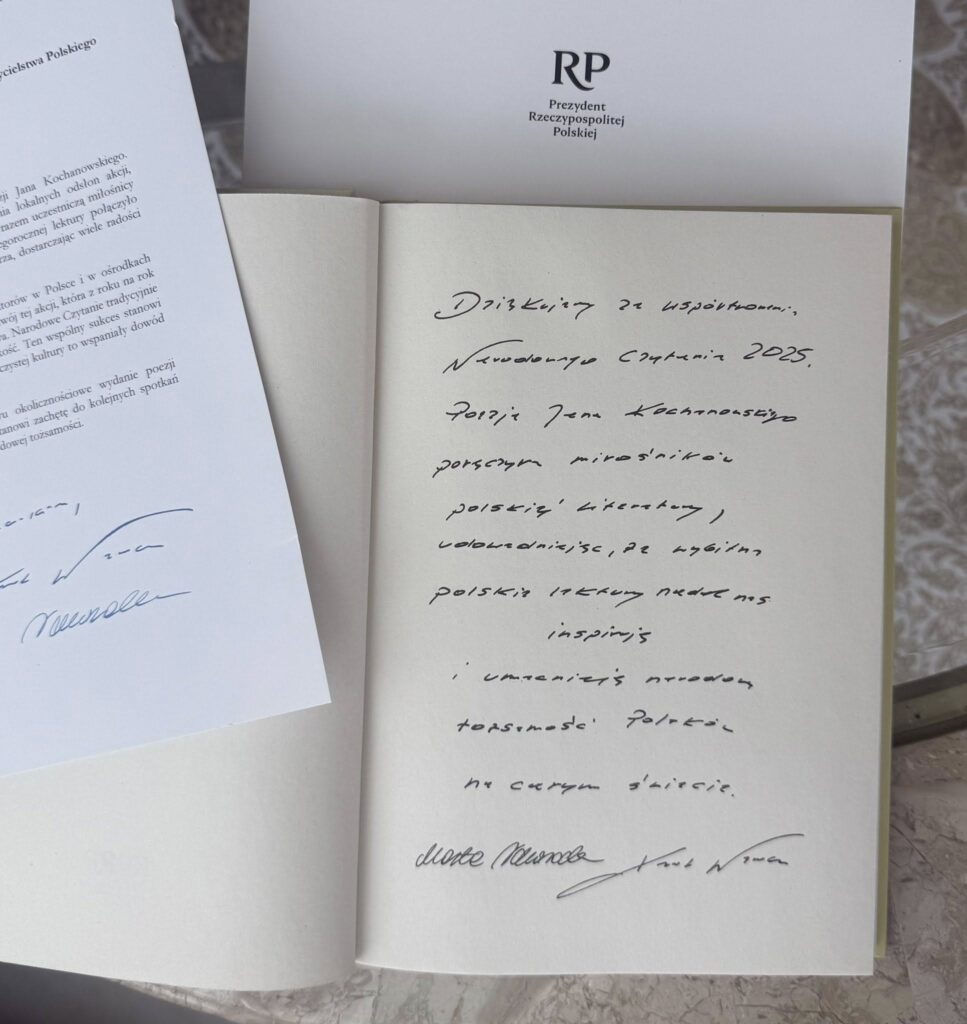 ycielstwa Polskiego
ji Jana Kochanowskiego.
nia lokalnych odsłon akcji,
razem uczestniczą miłośnicy
egorocznej lektury połączyło
rza, dostarczając wiele radości
torów w Polsce i w ośrodkach
wój tej akcji, która z roku na rok
a. Narodowe Czytanie tradycyjnie
kość. Ten wspólny sukces stanowi
czystej kultury to wspaniały dowód
ru okolicznościowe wydanie poezji
tanowi zachętę do kolejnych spotkań
dowej tożsamości.
RP
Prezydent
Rzeczypospolitej
Polskiej
Dziękujemy za współtworzenie
Narodowego Czytania 2025.
Poezja Jana Kochanowskiego
połączyła miłośników
polskiej literatury,
udowadniając, że wybitne
polskie lektury nadal nas
inspirują
i umacniają narodową
tożsamość Polaków
na całym świecie.
Marta Nawrocka